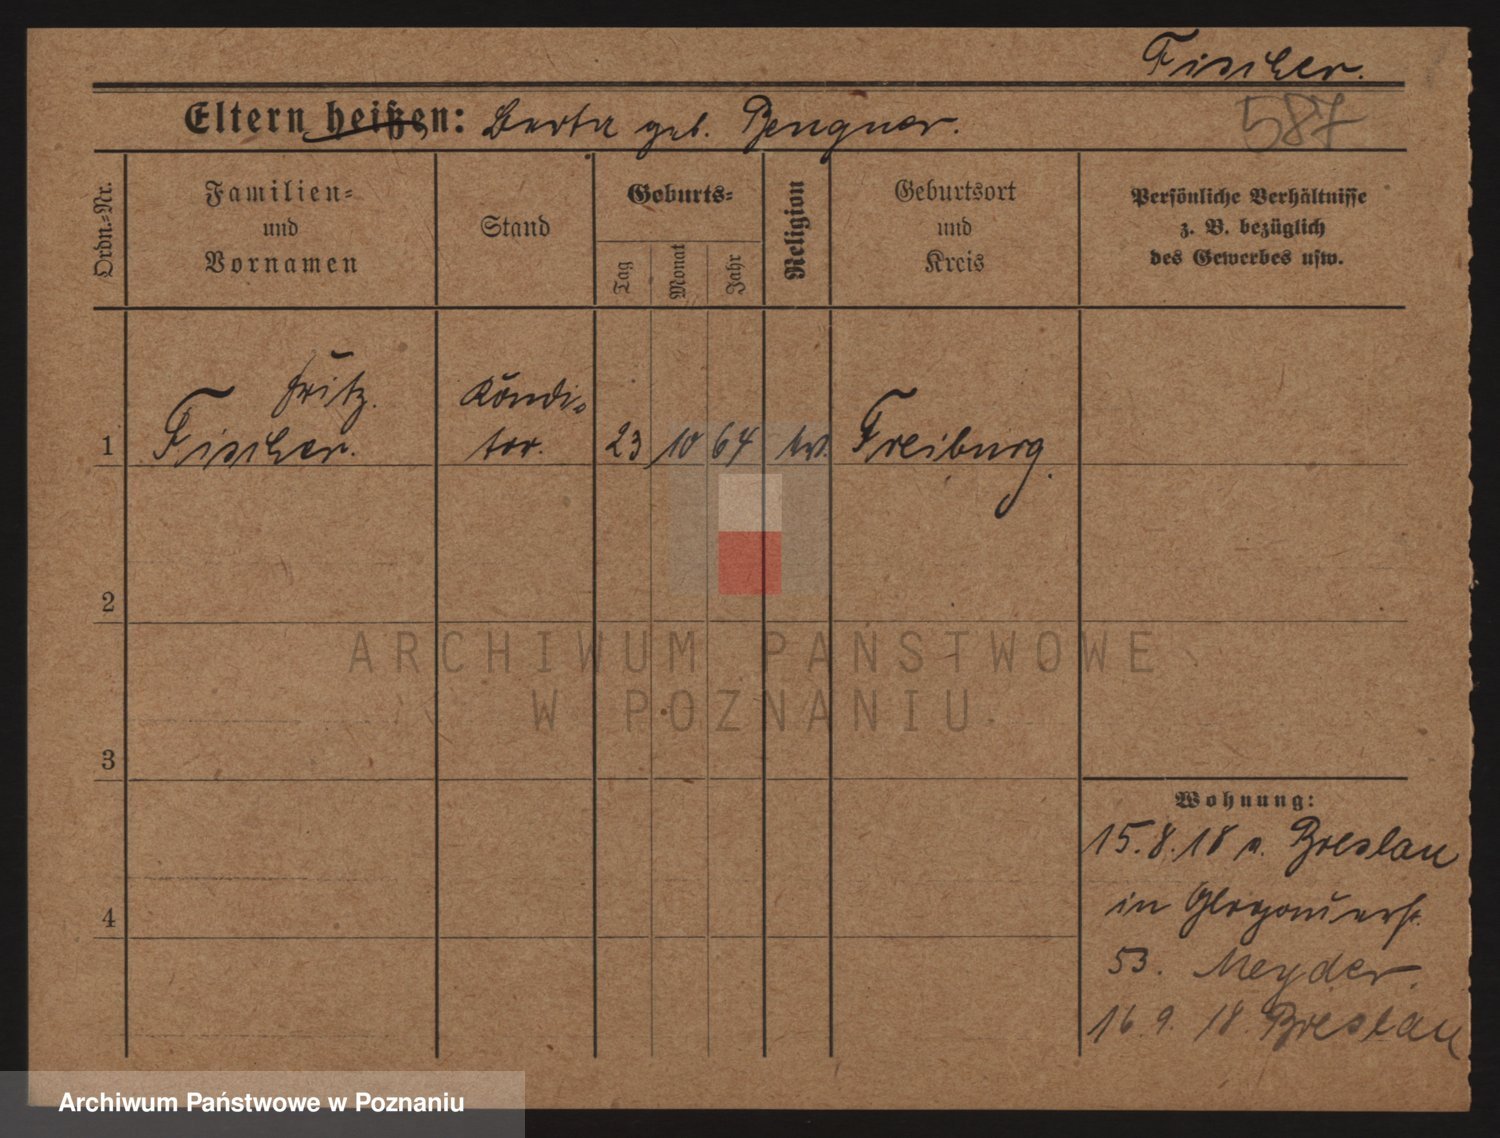 Fischer.
587
Eltern heißen: Berta geb. Bengner.
Ordn.-Nr.
Familien-
und
Vornamen
Stand
Geburts-
Tag
Monat
Jahr
Religion
Geburtsort
und
Kreis
Persönliche Verhältnisse
z. B. bezüglich
des Gewerbes usw.
Fritz.
Kondi-
1 Fischer. tor. 23 10 64 ev. Freiburg.
2
3
4
ARCHIWUM PAŃSTWOWE
W POZNANIU
Wohnung:
15.8.18 v. Breslau
in Glogauerst.
53. Meyder.
16.9.18. Breslau
Archiwum Państwowe w Poznaniu